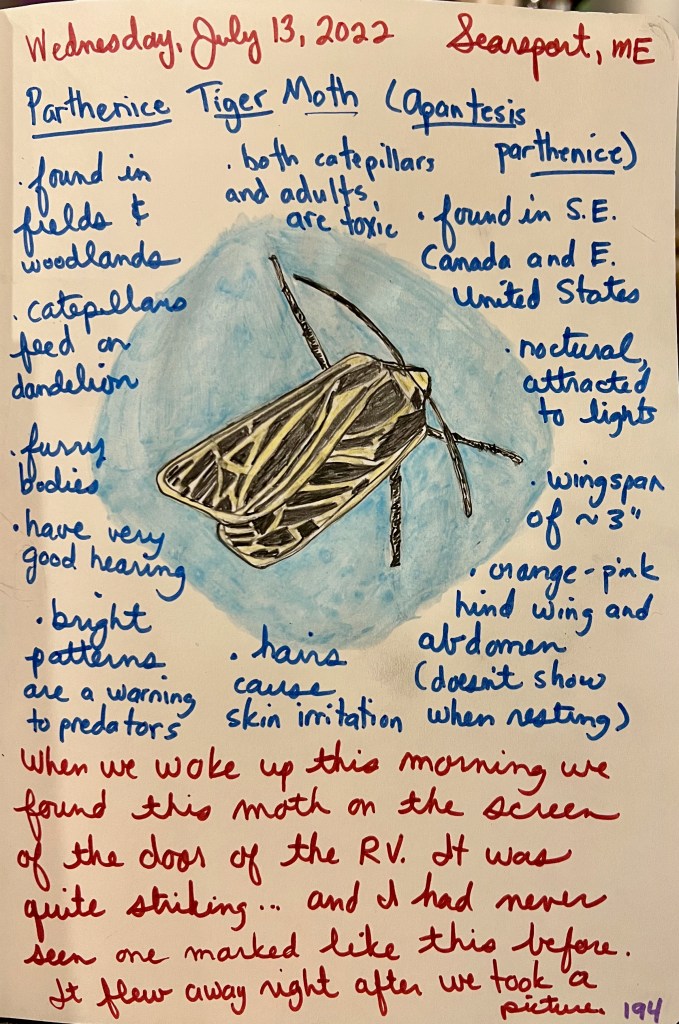 Wednesday, July 13, 2022 Searsport, ME
Parthenice Tiger Moth (Apantesis
parthenice)
· found in
fields &
woodlands
· both catepillars
and adults,
are toxic
· found in S.E.
Canada and E.
United States
· catepillars
feed on
dandelion
· noctural,
attracted
to lights
· furry
bodies
· wingspan
of ~ 3"
· have very
good hearing
· orange-pink
hind wing and
abdomen
(doesn't show
when resting)
· bright
patterns
are a warning
to predators
· hairs
cause
skin irritation
When we woke up this morning we
found this moth on the screen
of the door of the RV. It was
quite striking... and I had never
seen one marked like this before.
It flew away right after we took a
picture. 194